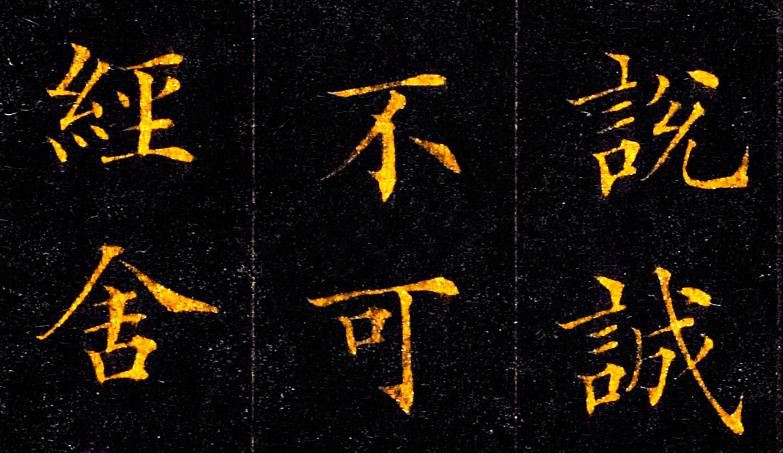 說誠
不可
經舍